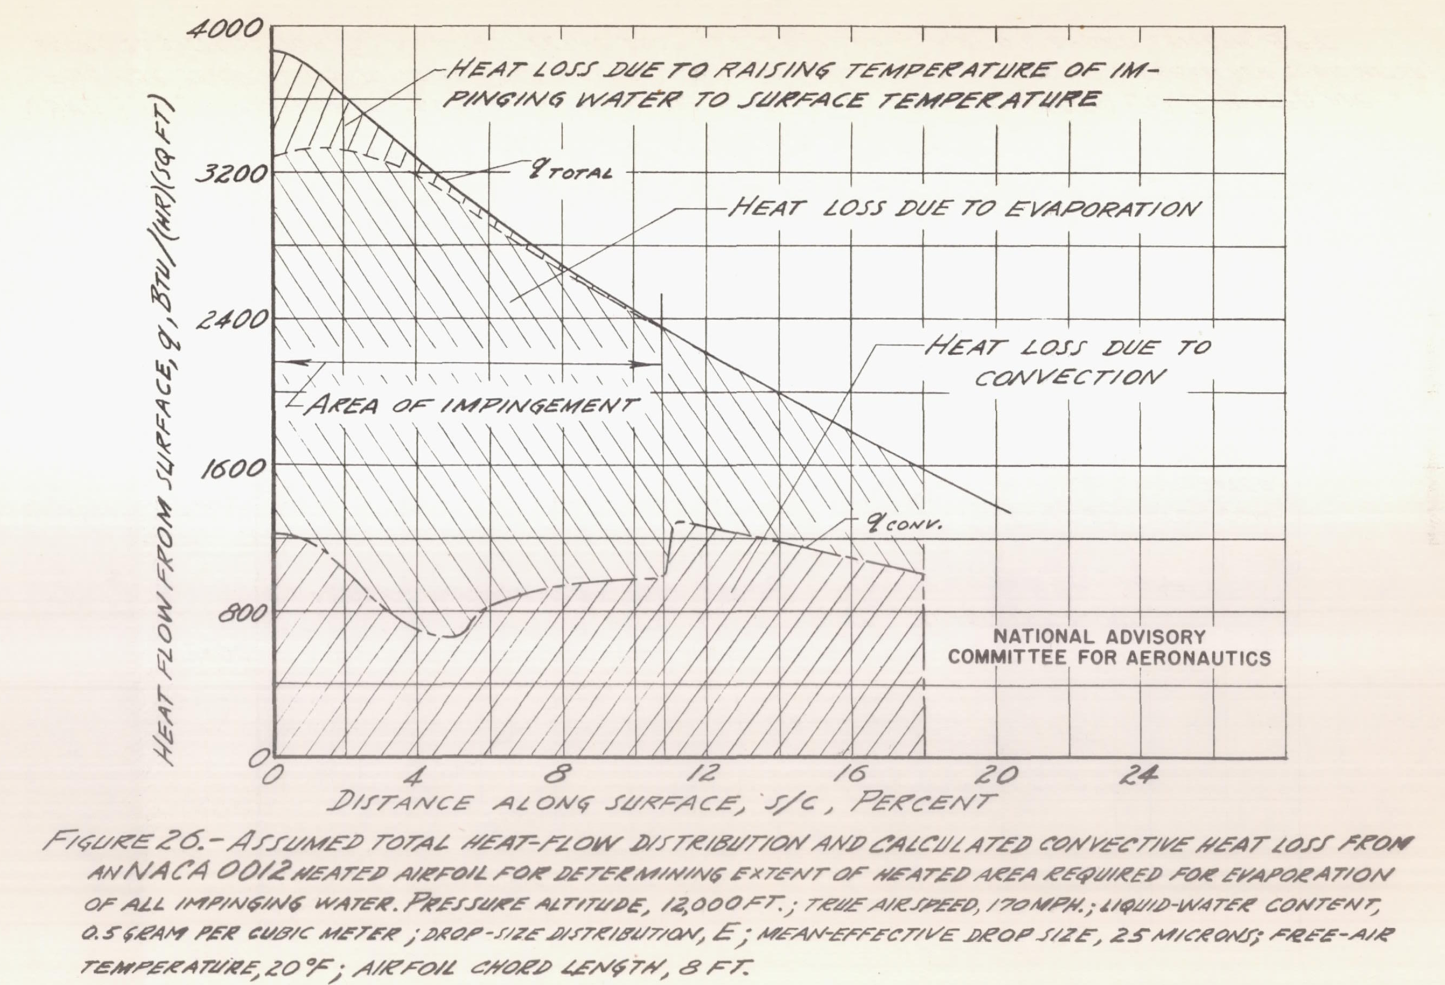 4000
HEAT LOSS DUE TO RAISING TEMPERATURE OF IM-
PINGING WATER TO SURFACE TEMPERATURE
3200
q TOTAL
HEAT LOSS DUE TO EVAPORATION
2400
HEAT LOSS DUE TO
CONVECTION
AREA OF IMPINGEMENT
1600
q CONV.
800
NATIONAL ADVISORY
COMMITTEE FOR AERONAUTICS
0
HEAT FLOW FROM SURFACE, q, BTU/(HR)(SQ FT)
0 4 8 12 16 20 24
DISTANCE ALONG SURFACE, s/c, PERCENT
FIGURE 26.- ASSUMED TOTAL HEAT-FLOW DISTRIBUTION AND CALCULATED CONVECTIVE HEAT LOSS FROM
AN NACA 0012 HEATED AIRFOIL FOR DETERMINING EXTENT OF HEATED AREA REQUIRED FOR EVAPORATION
OF ALL IMPINGING WATER. PRESSURE ALTITUDE, 12,000 FT.; TRUE AIRSPEED, 170 MPH.; LIQUID-WATER CONTENT,
0.5 GRAM PER CUBIC METER; DROP-SIZE DISTRIBUTION, E; MEAN-EFFECTIVE DROP SIZE, 25 MICRONS; FREE-AIR
TEMPERATURE, 20°F; AIRFOIL CHORD LENGTH, 8 FT.